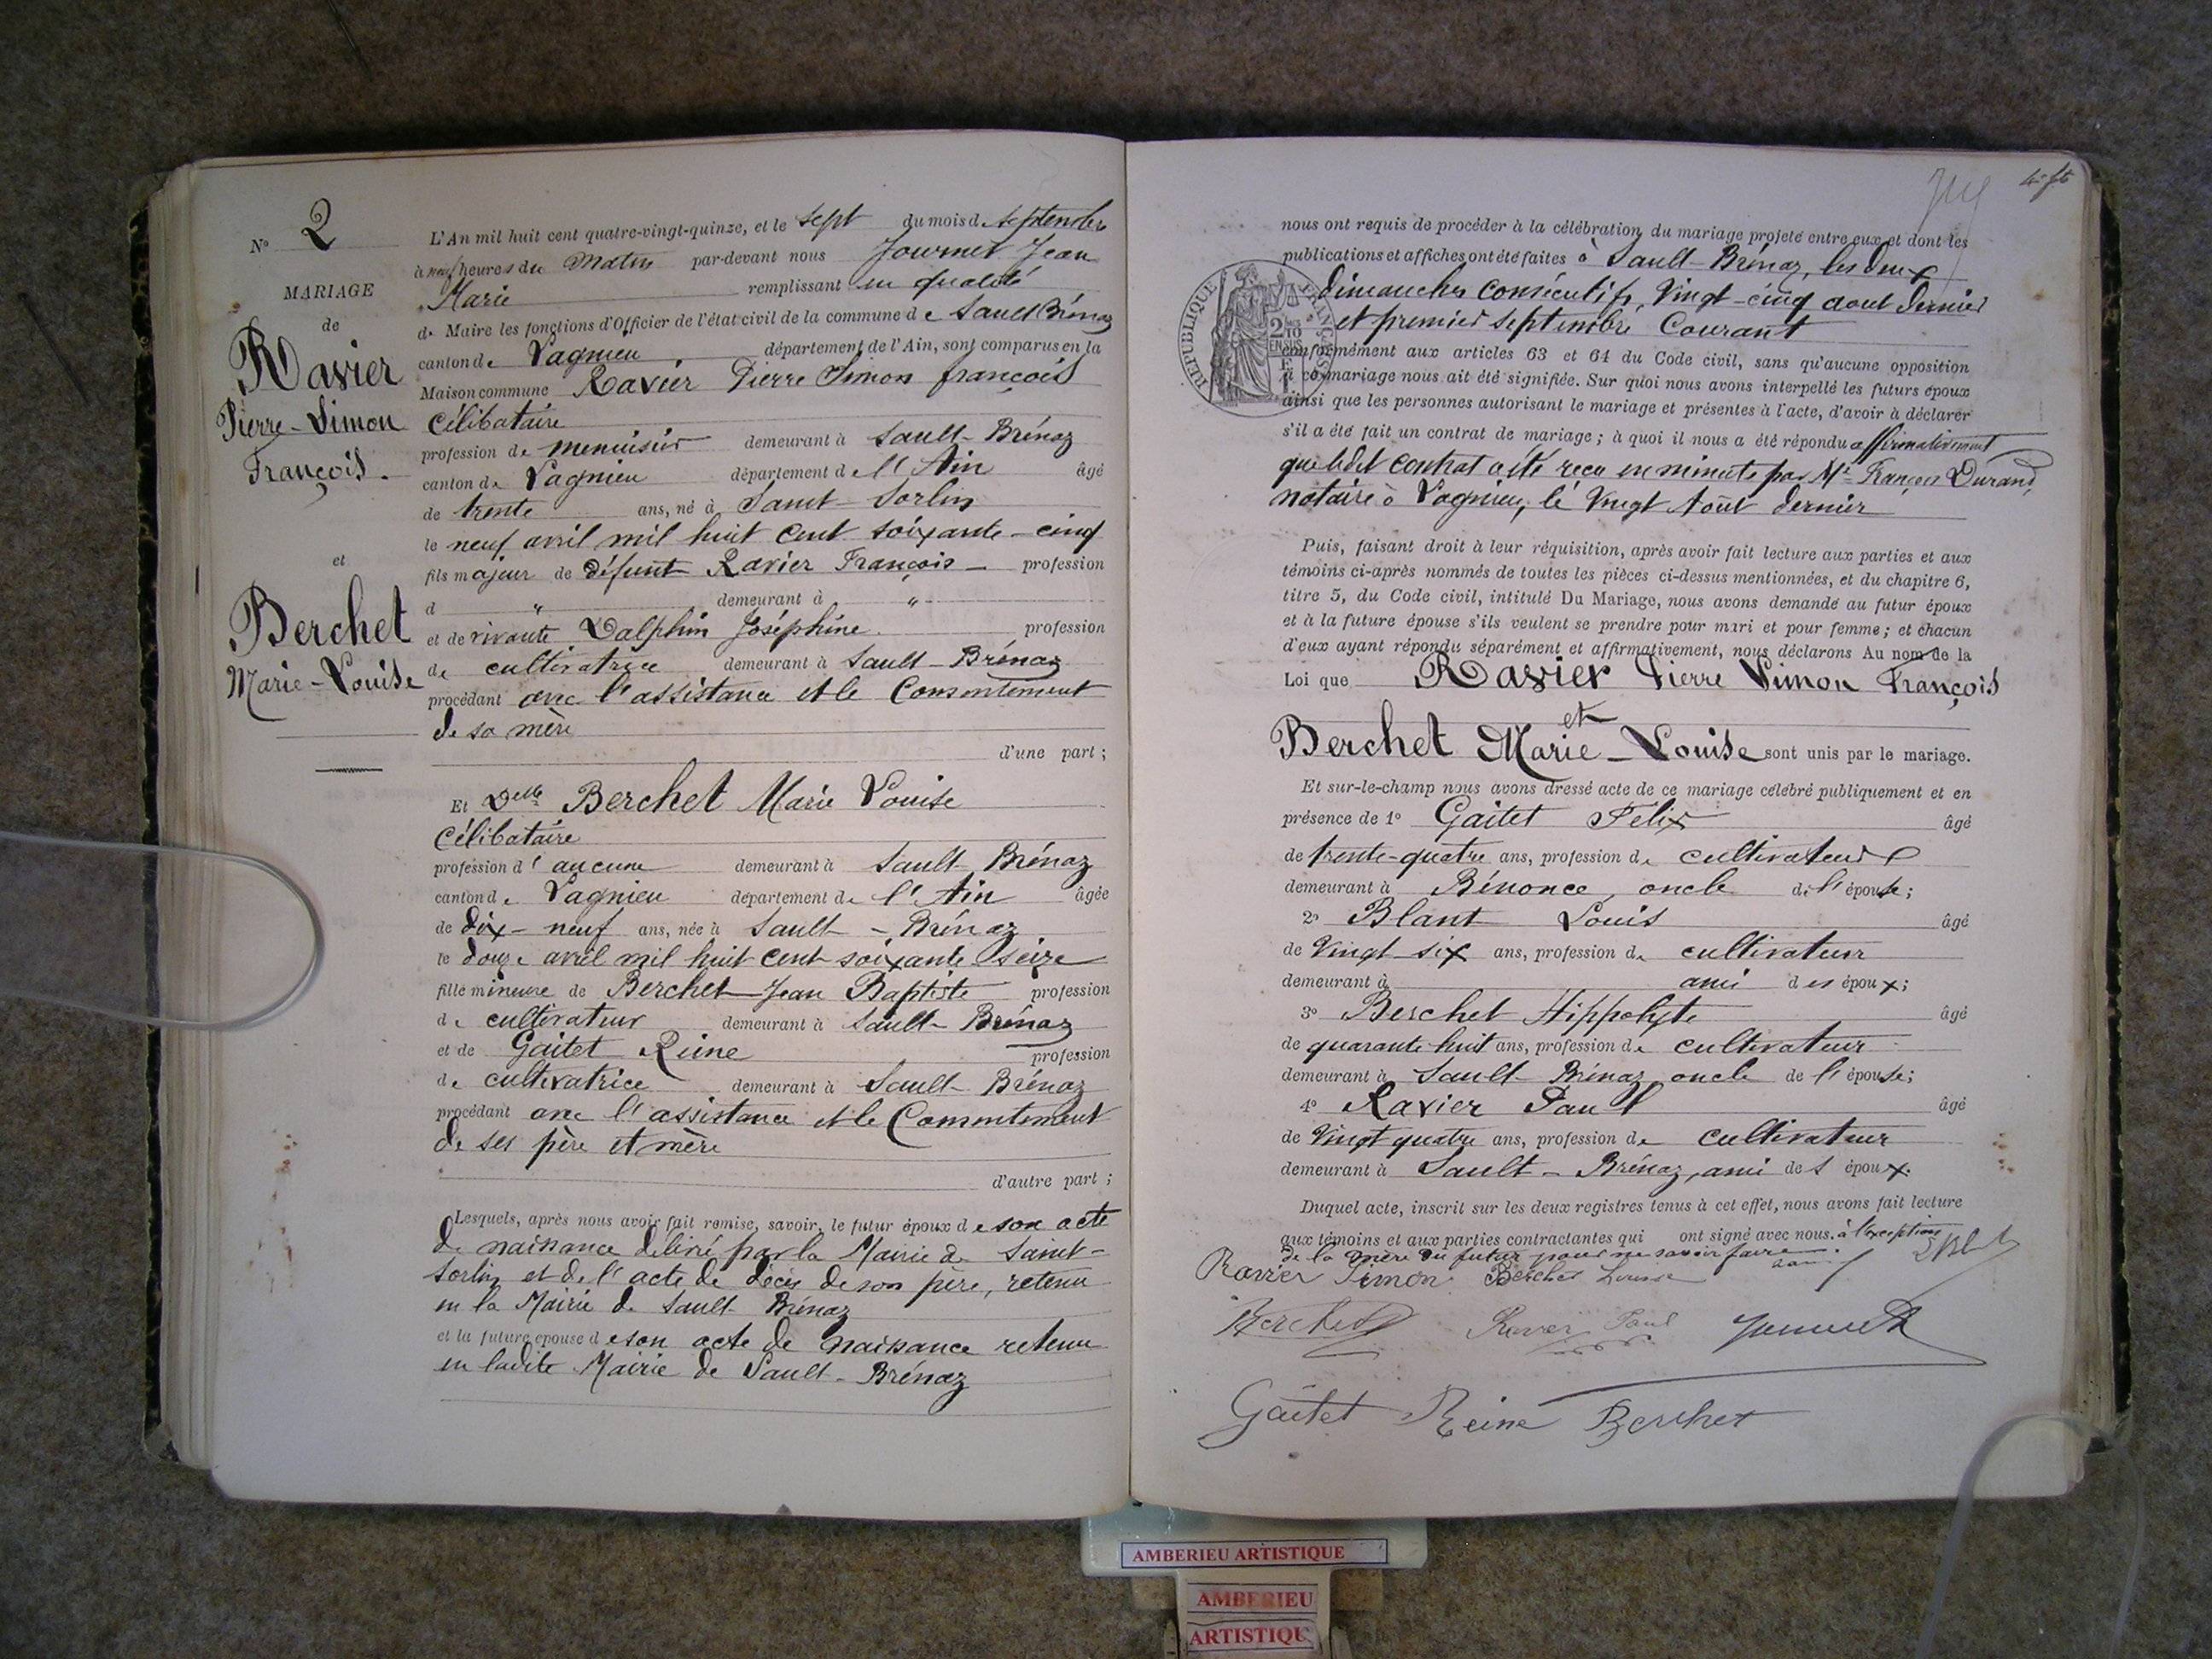 N° 2
MARIAGE
de
Ravier
Pierre-Simon
François.
et
Berchet
Marie-Louise
L'An mil huit cent quatre-vingt-quinze, et le sept du mois d septembre
à neuf heures du matin par-devant nous Journet Jean
Marie remplissant en qualité
de Maire les fonctions d'Officier de l'état civil de la commune de Sault Brénaz
canton de Lagnieu département de l'Ain, sont comparus en la
Maison commune Ravier Pierre Simon François
Célibataire
profession de menuisier demeurant à Sault-Brénaz
canton de Lagnieu département de l'Ain âgé
de trente ans, né à Saint-Sorlin
le neuf avril mil huit cent soixante-cinq
fils majeur de défunt Ravier François profession
d " demeurant à "
et de vivante Dalphin Joséphine profession
de cultivatrice demeurant à Sault-Brénaz
procédant avec l'assistance et le Consentement
de sa mère
d'une part ;
Et Delle Berchet Marie Louise
Célibataire
profession d'aucune demeurant à Sault Brénaz
canton de Lagnieu département de l'Ain âgée
de dix-neuf ans, née à Sault-Brénaz
le douze avril mil huit cent soixante seize
fille mineure de Berchet Jean Baptiste profession
de cultivateur demeurant à Sault-Brénaz
et de Gaitet Reine profession
de cultivatrice demeurant à Sault-Brénaz
procédant avec l'assistance et le Consentement
de ses père et mère
d'autre part ;
Lesquels, après nous avoir fait remise, savoir, le futur époux de son acte
de naissance délivré par la Mairie de Saint-
Sorlin et de l'acte de décès de son père, retenu
en la Mairie de Sault-Brénaz
et la future épouse de son acte de naissance retenu
en ladite Mairie de Sault-Brénaz
nous ont requis de procéder à la célébration du mariage projeté entre eux et dont les
publications et affiches ont été faites à Sault-Brénaz, les deux
dimanches consécutifs, Vingt-cinq aout dernier
et premier septembre Courant
RÉPUBLIQUE FRANÇAISE
2/10 EN SUS
conformément aux articles 63 et 64 du Code civil, sans qu'aucune opposition
à ce mariage nous ait été signifiée. Sur quoi nous avons interpellé les futurs époux
ainsi que les personnes autorisant le mariage et présentes à l'acte, d'avoir à déclarer
s'il a été fait un contrat de mariage ; à quoi il nous a été répondu affirmativement
que ledit contrat a été reçu en minute par Me François Durand,
notaire à Lagnieu, le Vingt Août dernier
Puis, faisant droit à leur réquisition, après avoir fait lecture aux parties et aux
témoins ci-après nommés de toutes les pièces ci-dessus mentionnées, et du chapitre 6,
titre 5, du Code civil, intitulé Du Mariage, nous avons demandé au futur époux
et à la future épouse s'ils veulent se prendre pour mari et pour femme ; et chacun
d'eux ayant répondu séparément et affirmativement, nous déclarons Au nom de la
Loi que Ravier Pierre Simon François
et
Berchet Marie-Louise sont unis par le mariage.
Et sur-le-champ nous avons dressé acte de ce mariage célébré publiquement et en
présence de 1° Gaitet Felix âgé
de trente-quatre ans, profession de cultivateur
demeurant à Bénonce, oncle de l'épouse ;
2° Blant Louis âgé
de Vingt six ans, profession de cultivateur
demeurant à ami des époux ;
3° Berchet Hippolyte âgé
de quarante huit ans, profession de cultivateur
demeurant à Sault-Brénaz, oncle de l'épouse ;
4° Ravier Paul âgé
de Vingt quatre ans, profession de cultivateur
demeurant à Sault-Brénaz, ami des époux.
Duquel acte, inscrit sur les deux registres tenus à cet effet, nous avons fait lecture
aux témoins et aux parties contractantes qui ont signé avec nous. à l'exception
de la mère du futur pour ne savoir faire.
Ravier Simon Berchet Louise
Berchet Ravier Paul Journet
Gaitet Reine Berchet
AMBERIEU ARTISTIQUE
AMBERIEU
ARTISTIQU